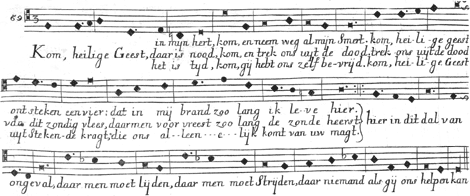 69
in mijn hert, kom, en neem weg al mijn smert. kom, hei-li-ge geest
Kom, heilige Geest, daar is nood, kom, en trek ons uyt de dood, trek ons uyt de dood
het is tyd, kom, gij hebt ons zelf be-vrijd, kom, hei-li-ge Geest
ontsteken een vier: dat in mij brand zoo lang ik le-ve hier.
van dit zondig vlees, daar men voor vreest zoo lang de zonde heerst hier in dit dal van
uyt Steken-de kragt, die ons al--leen--e--lijk komt van uw magt.
ongeval, daar men moet Lijden, daar men moet Strijden, daar niemand als gij ons helpen kan